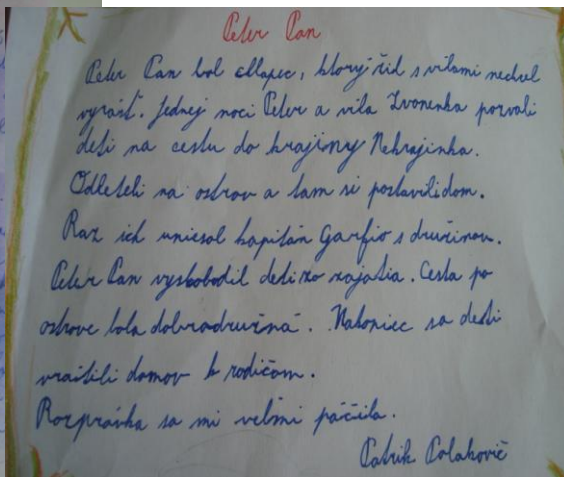 Peter Pan
Peter Pan bol chlapec, ktorý žil s vílami nechcel
vyrásť. Jednej noci Peter a víla Zvonenka pozvali
deti na cestu do krajiny Nekrajinka.
Odleteli na ostrov a tam si postavili dom.
Raz ich uniesol kapitán Garfio s družinou.
Peter Pan vyslobodil deti zo zajatia. Cesta po
ostrove bola dobrodružná. Nakoniec sa deti
vrátili domov k rodičom.
Rozprávka sa mi veľmi páčila.
Patrik Polakovič